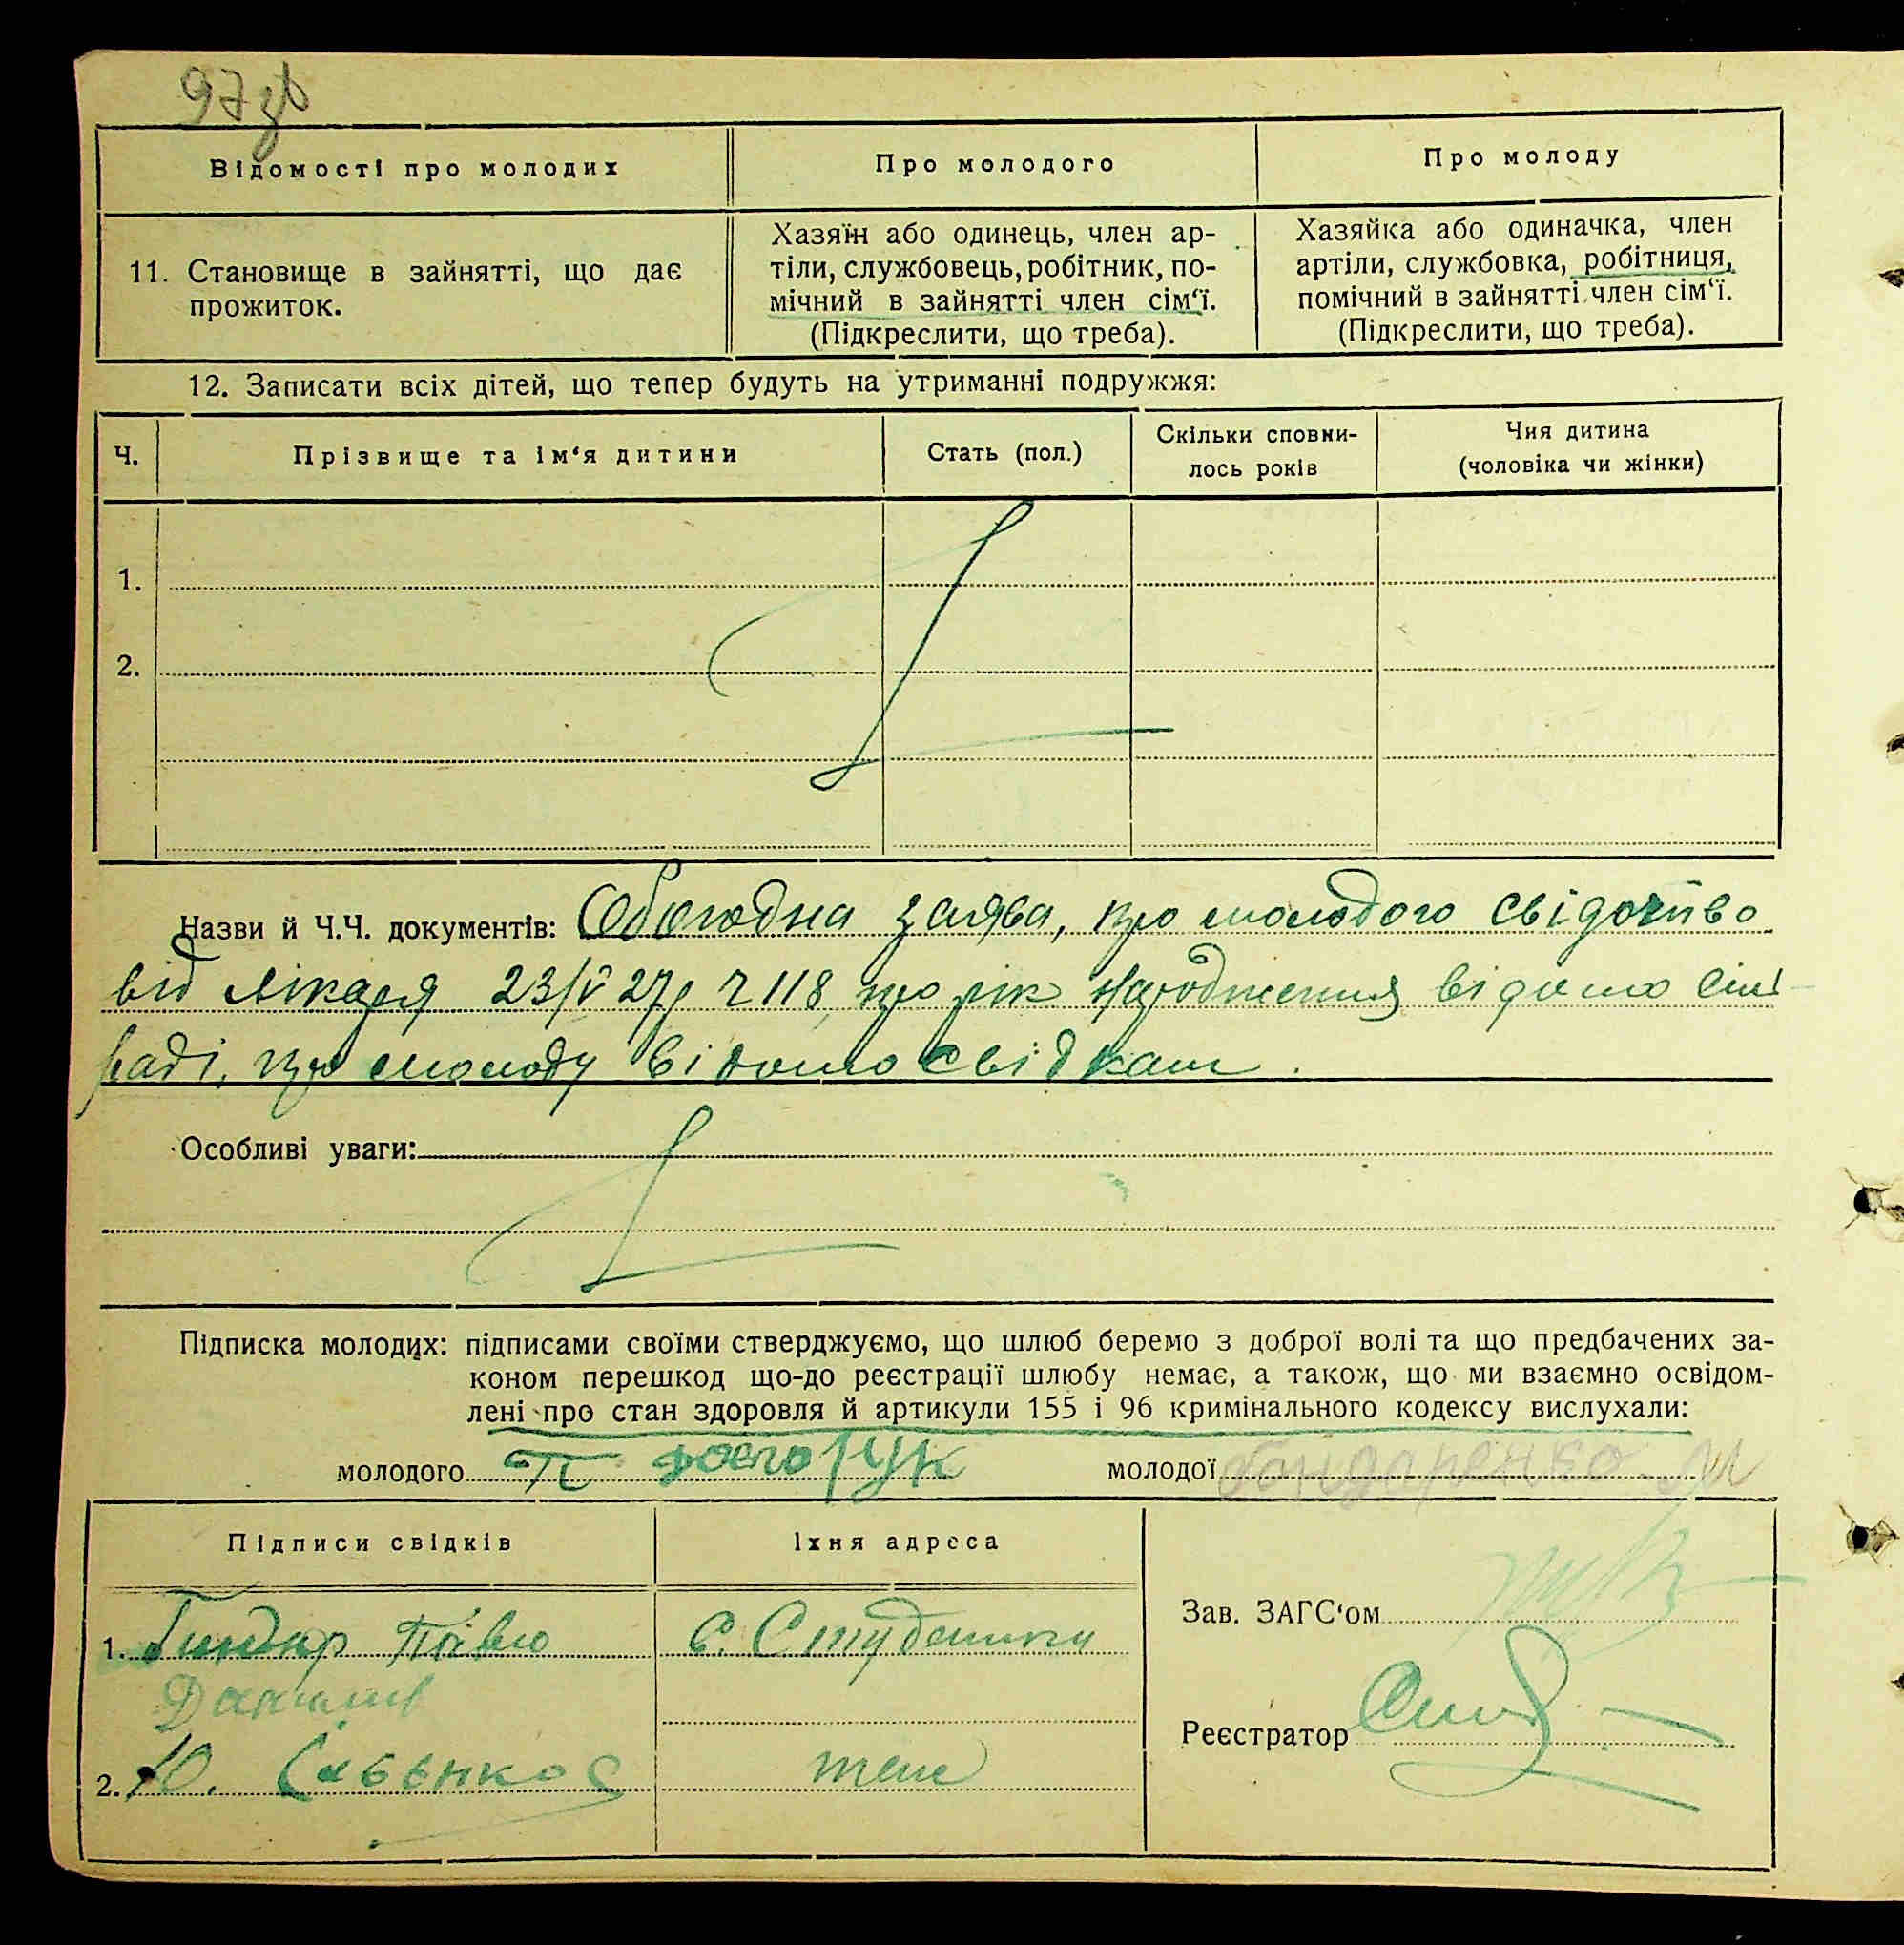 97 зв
Відомості про молодих
Про молодого
Про молоду
11. Становище в зайнятті, що дає
прожиток.
Хазяїн або одинець, член ар-
тіли, службовець, робітник, по-
мічний в зайнятті член сім'ї.
(Підкреслити, що треба).
Хазяйка або одиначка, член
артіли, службовка, робітниця,
помічний в зайнятті член сім'ї.
(Підкреслити, що треба).
12. Записати всіх дітей, що тепер будуть на утриманні подружжя:
Ч.
Прізвище та ім'я дитини
Стать (пол.)
Скільки сповни-
лось років
Чия дитина
(чоловіка чи жінки)
1.
2.
Назви й Ч.Ч. документів: Обоюдна заява, про молодого свідоцтво
від лікаря 23/V 27р ч 118, про рік народження відомо сіль
раді, про молоду відомо свідкам.
Особливі уваги:
Підписка молодих: підписами своїми стверджуємо, що шлюб беремо з доброї волі та що предбачених за-
коном перешкод що-до реєстрації шлюбу немає, а також, що ми взаємно освідом-
лені про стан здоровля й артикули 155 і 96 кримінального кодексу вислухали:
молодого П Довгорук молодої бондаренко М
Підписи свідків
Їхня адреса
1. Павло
с. Студеники
Данилив
2. Ю. Савенко
теж
Зав. ЗАГС'ом
Реєстратор